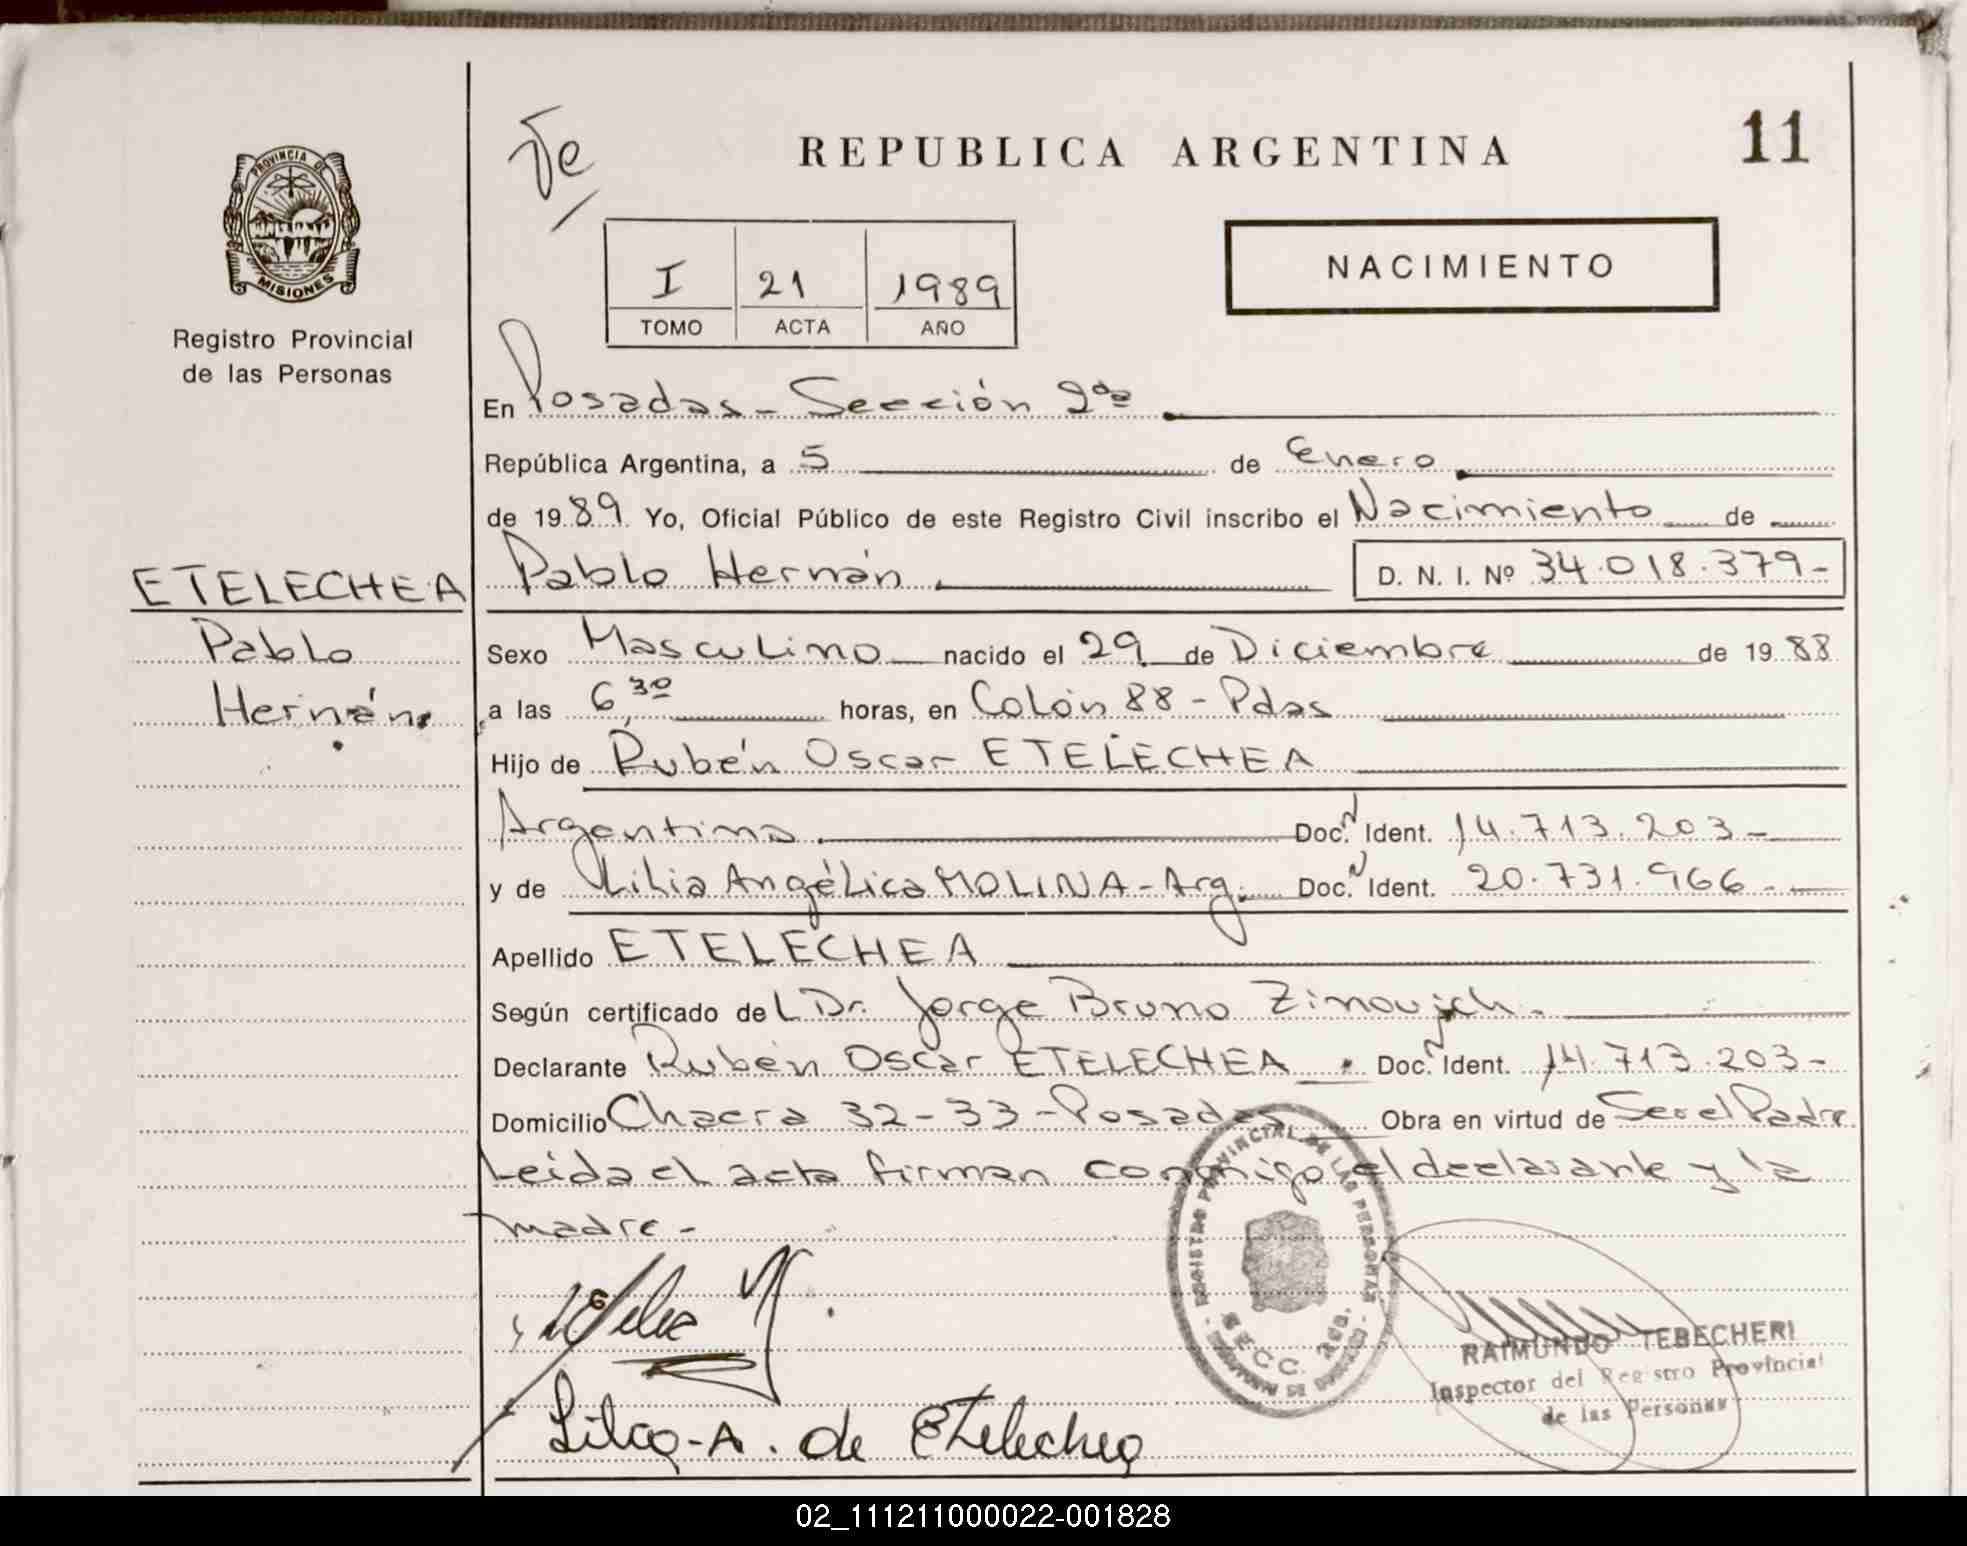 Te
REPUBLICA ARGENTINA
11
PROVINCIA DE
MISIONES
Registro Provincial
de las Personas
I 21 1989
TOMO ACTA AÑO
NACIMIENTO
En Posadas - Sección 2da
República Argentina, a 5 de Enero
de 1989 Yo, Oficial Público de este Registro Civil inscribo el Nacimiento de
Pablo Hernán D. N. I. Nº 34.018.379-
ETELECHEA
Pablo
Hernán
Sexo Masculino nacido el 29 de Diciembre de 1988
a las 6,30 horas, en Colón 88 - Pdas
Hijo de Rubén Oscar ETELECHEA
Argentino Doc. N Ident. 14.713.203-
y de Lilia Angélica MOLINA - Arg. Doc. N Ident. 20.731.966-
Apellido ETELECHEA
Según certificado del Dr. Jorge Bruno Zinovich.
Declarante Rubén Oscar ETELECHEA Doc. N Ident. 14.713.203-
Domicilio Chacra 32-33-Posadas Obra en virtud de Ser el Padre
Leida el acta firman conmigo el declarante y la
madre-
REGISTRO PROVINCIAL DE LAS PERSONAS
SECC. 2da.
Lilia-A. de Etelechea
RAIMUNDO TEBECHERI
Inspector del Registro Provincial
de las Personas
02_111211000022-001828